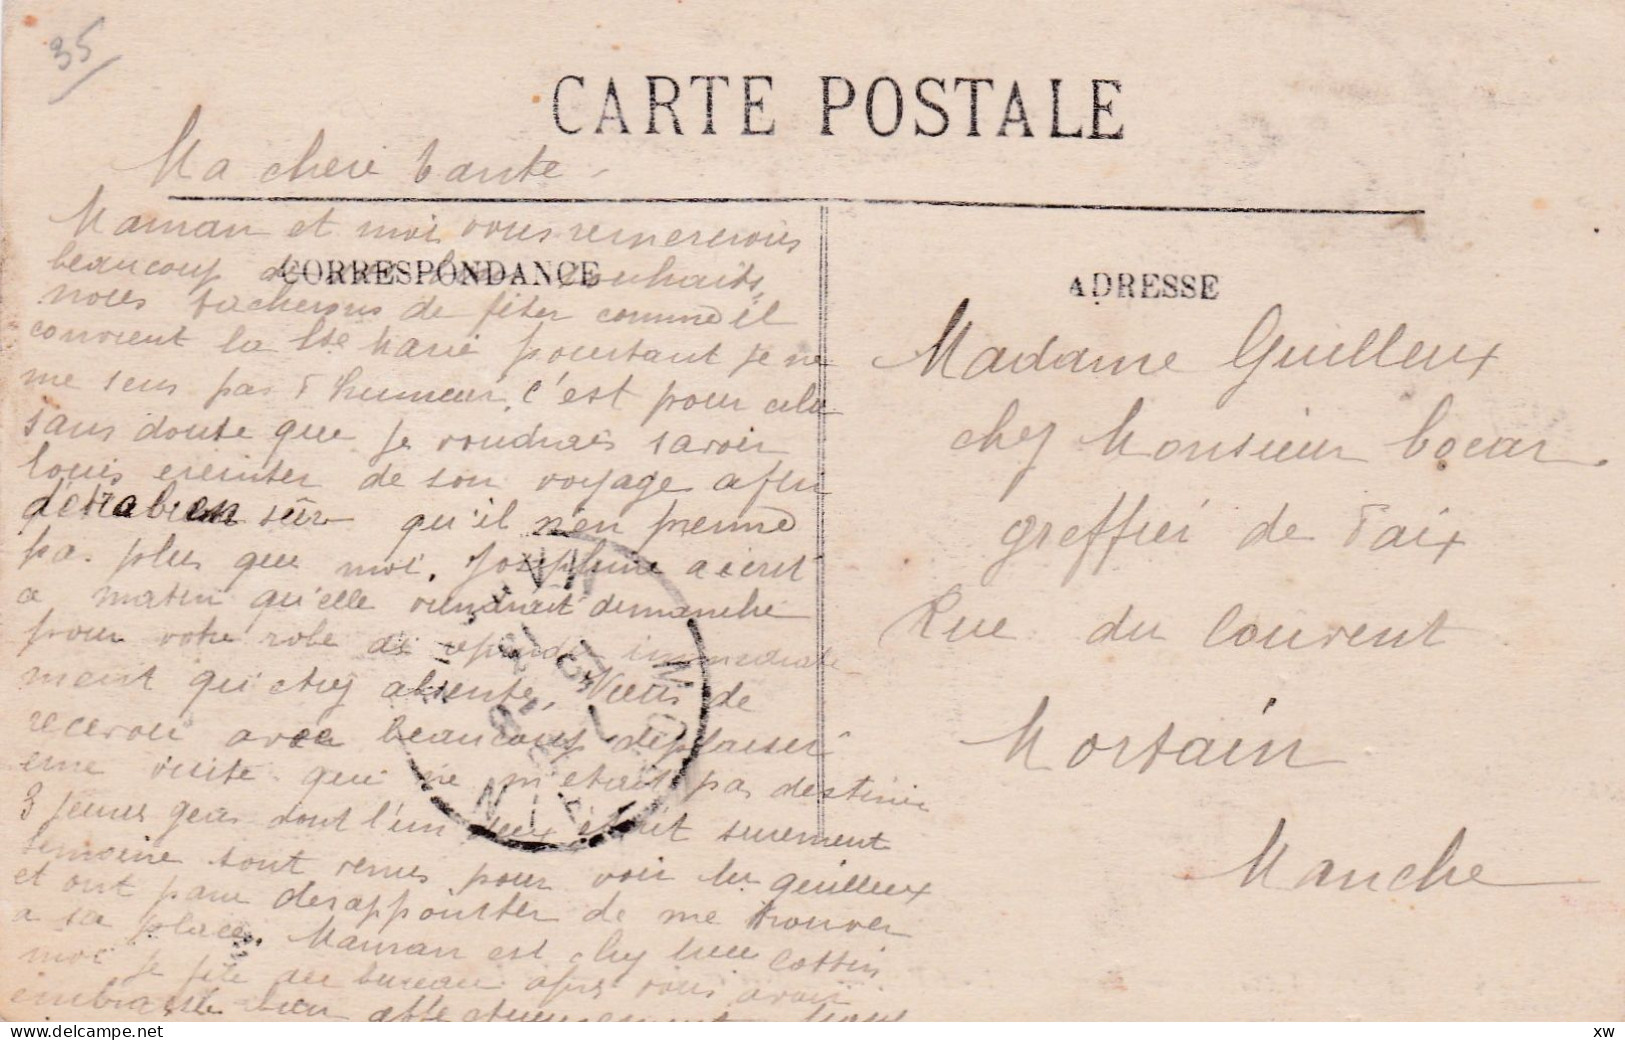 35
CARTE POSTALE
Ma chere tante
Maman et moi vous remercions
beaucoup de souhaits,
nous tacherons de feter comme il
convient la Ste Marie pourtant je ne
me sens pas d'humeur, c'est pour cela
sans doute que je voudrais savoir
louis ereinter de son voyage afin
d'etre bien sûr qu'il n'en prenne
pas plus que moi. Josephine a ecrit
a matin qu'elle viendrait dimanche
pour votre robe de repondre immediate
ment qu'etes absente, Viens de
recevoir avec beaucoup deplaisir
une visite qui ne m'etait pas destinée
3 jeunes gens dont l'un deux etait surement
lemoine sont venus pour voir les guilleux
et ont paru desappointer de me trouver
a sa place. Maman est chez Cottin
moi je file au bureau apres vous avoir
embrassé bien affectueusement
CORRESPONDANCE
ADRESSE
Madame Guilleux
chez Monsieur Cocar
greffier de Paix
Rue du Couvent
Mortain
Manche
xw